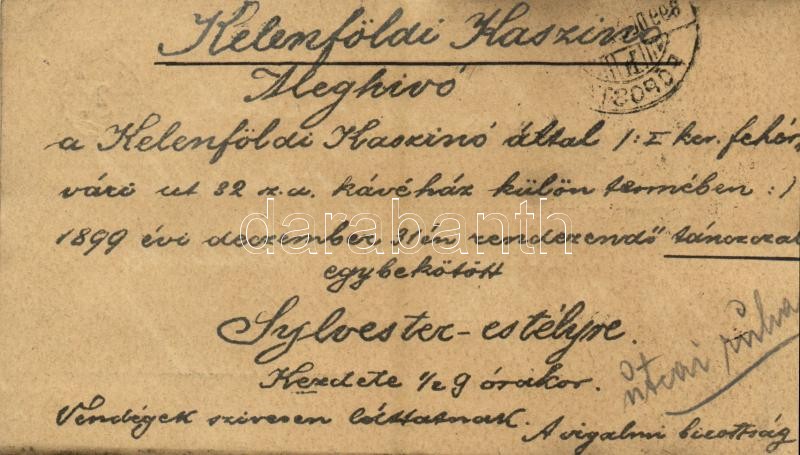 Kelenföldi Kaszinó
Meghivó
a Kelenföldi Kaszinó által /: I ker. fehér,
vári ut 32 z. a. kávéház külön termében :/
1899 évi deczember 31én rendezendő tánczczal
egybekötött
Sylvester-estélyre.
Kezdete 1/2 9 órakor.
útcai ruha
Vendégek szivesen láttatnak.
A vigalmi bizottság
darabanth